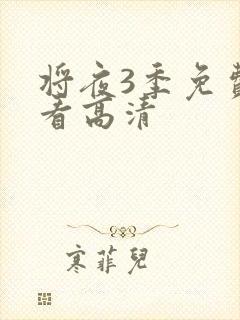 将夜3季免费
看高清
寒菲兒